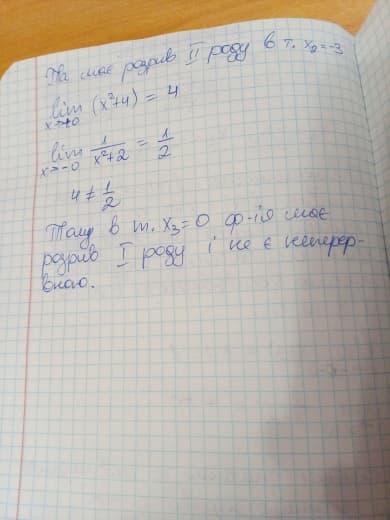 Та має розрив II роду в т. x₂=-3
lim (x²+4) = 4
x→+0
lim 1/(x²+2) = 1/2
x→-0
4 ≠ 1/2
Тому в т. x₃=0 ф-ія має
розрив I роду і не є непере-
вною.